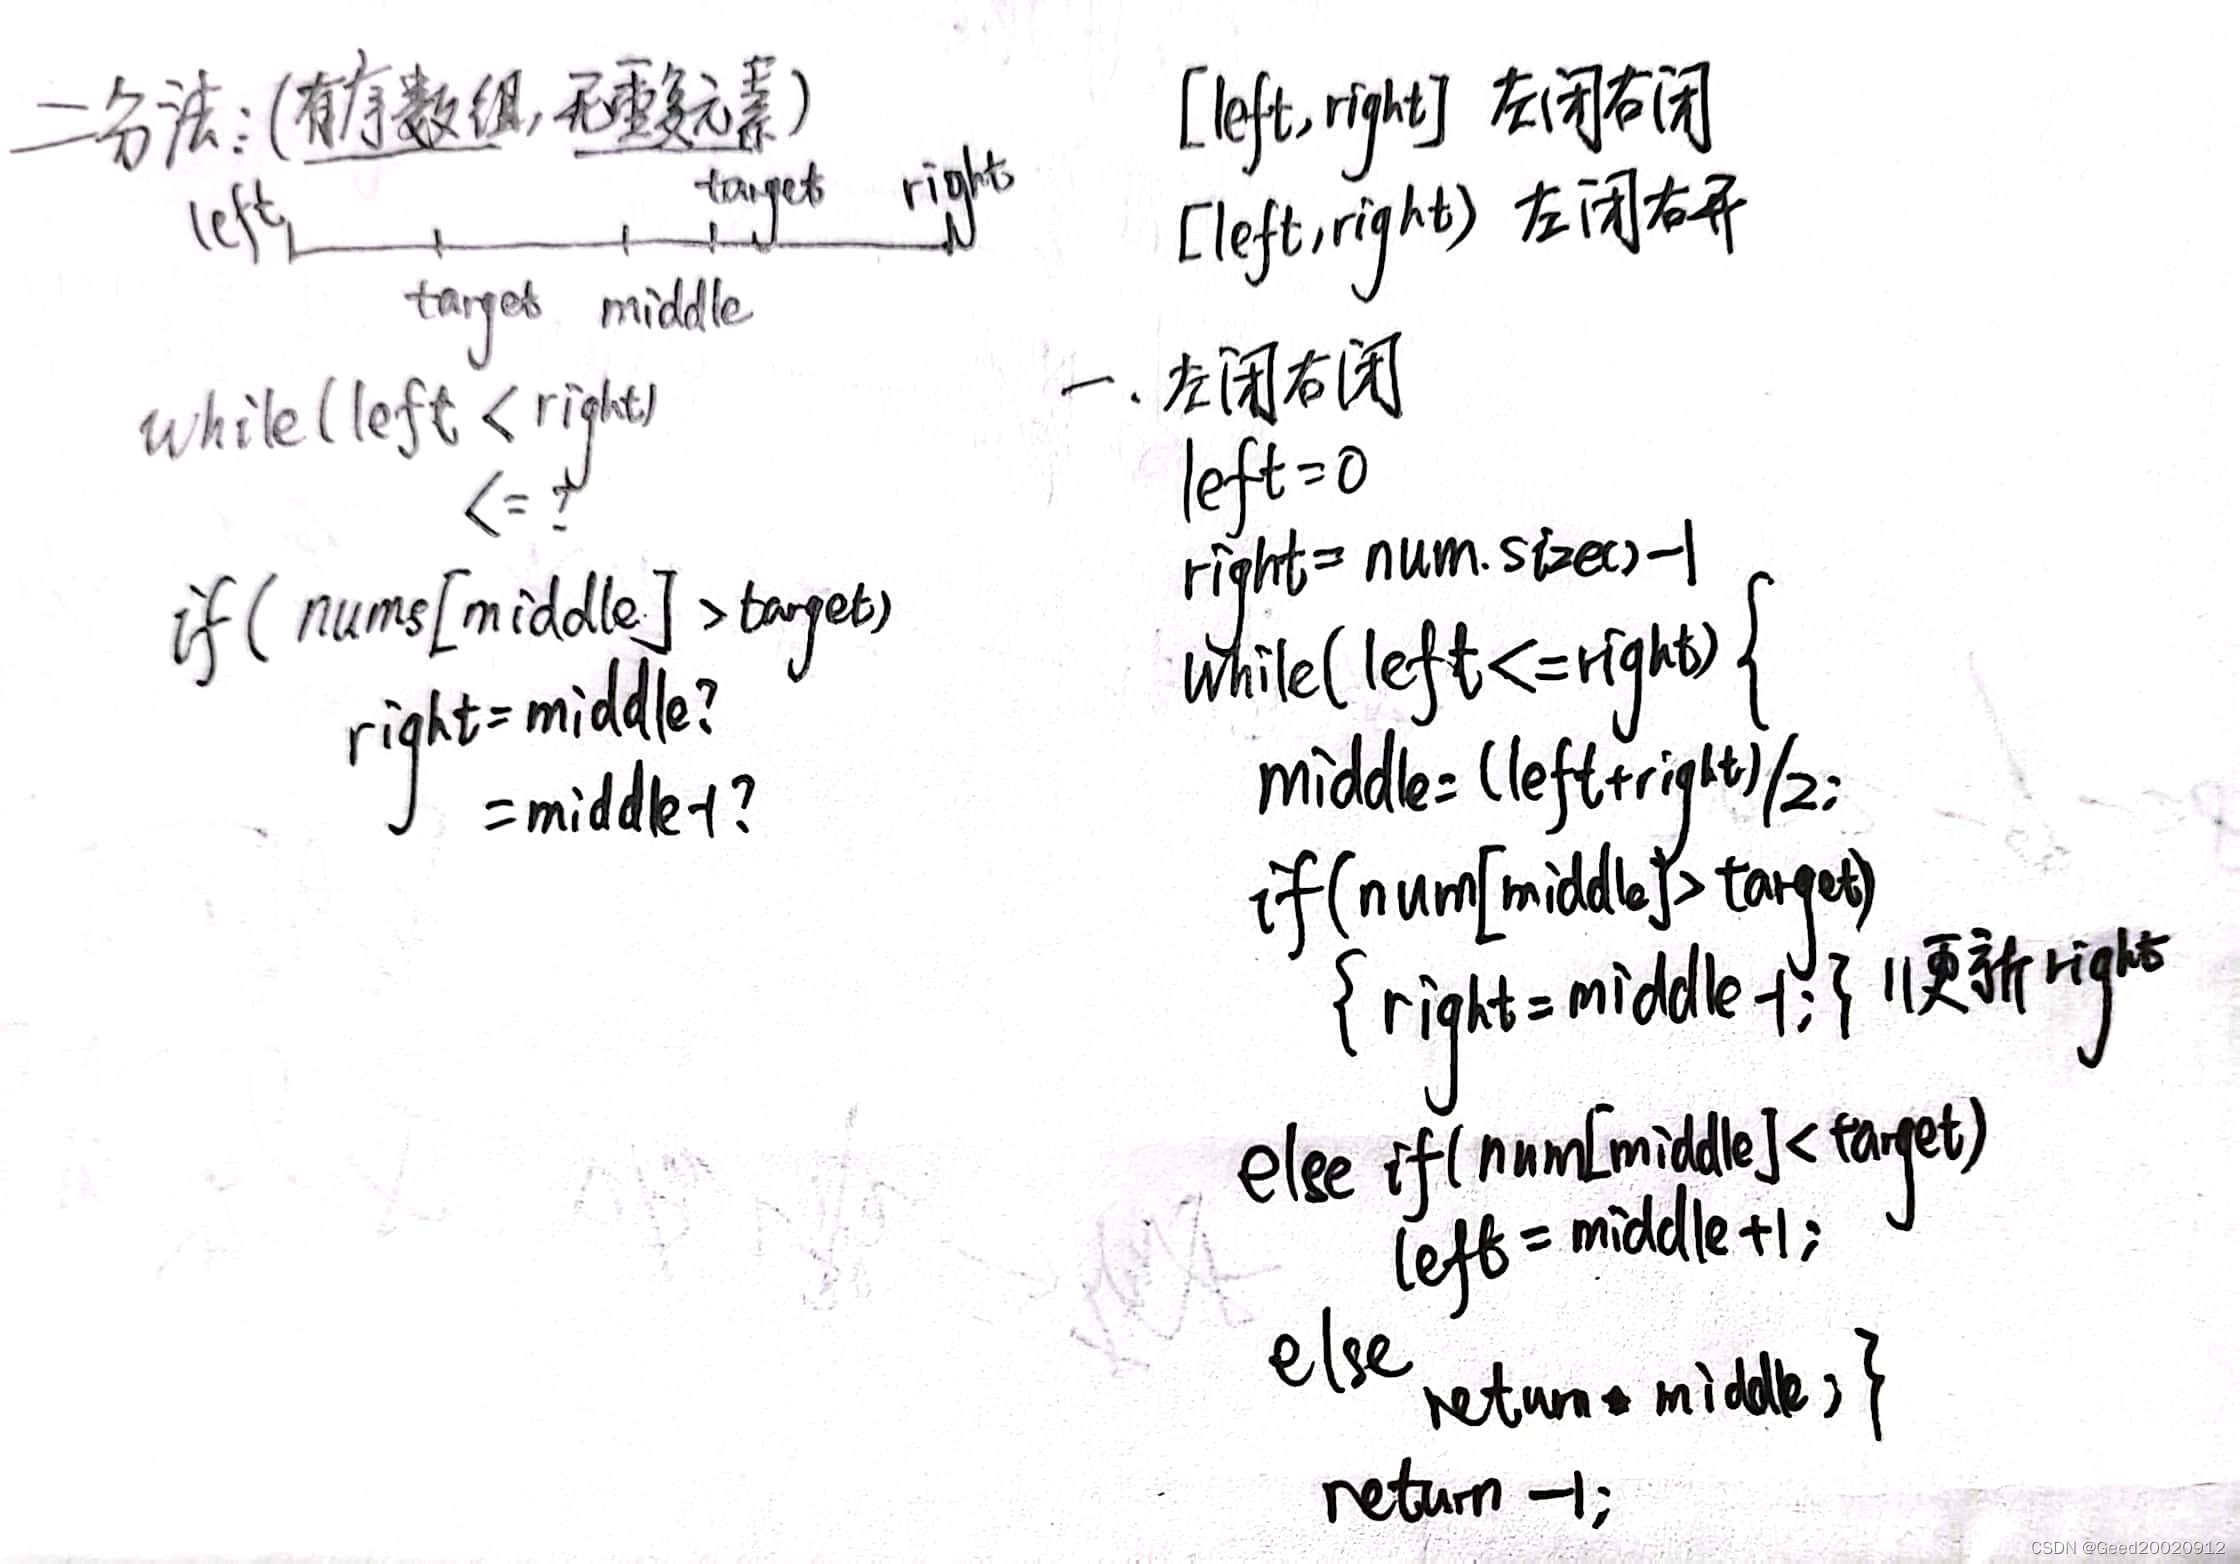 二分法:(有序数组,无重复元素)
left target right
target middle
while(left < right)
<= ?
if( nums[middle] > target)
right = middle?
= middle-1?
[left,right] 左闭右闭
[left,right) 左闭右开
一. 左闭右闭
left = 0
right = num.size()-1
while( left <= right) {
middle = (left+right)/2;
if(num[middle] > target)
{ right = middle -1; } //更新right
else if(num[middle] < target)
left = middle +1;
else
return middle; }
return -1;
CSDN @Geed20020912